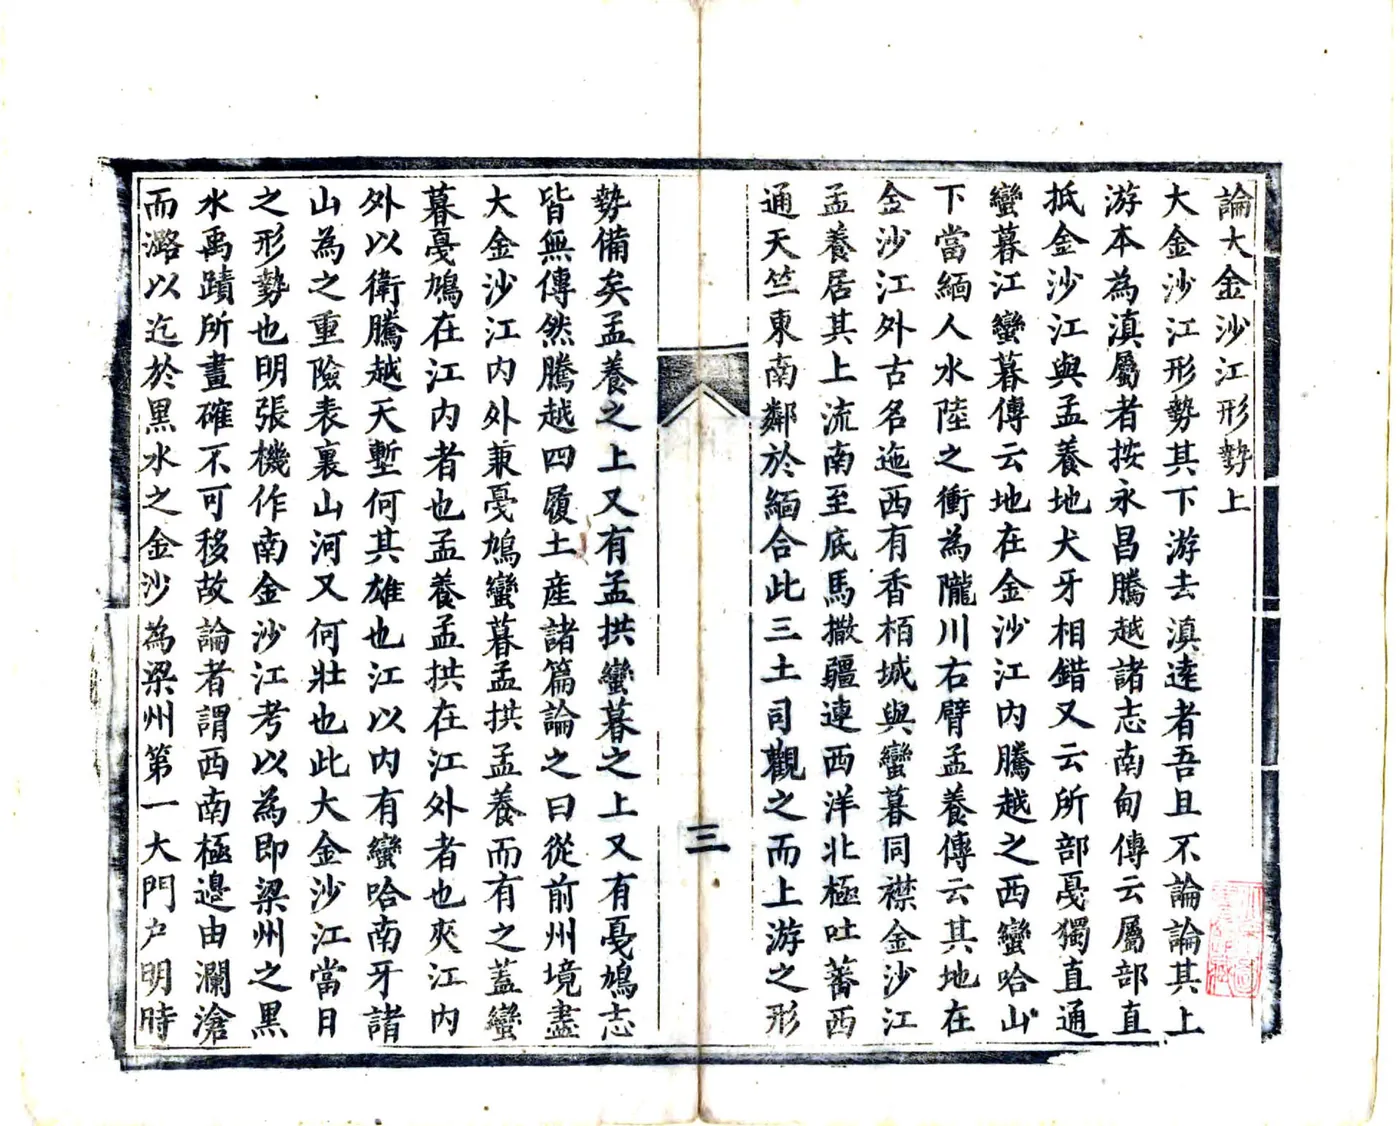 論大金沙江形勢上
大金沙江形勢其下游去滇逺者吾且不論論其上
游本為滇屬者按永昌騰越諸志南甸傳云屬部直
抵金沙江與孟養地犬牙相錯又云所部戞獨直通
蠻暮江蠻暮傳云地在金沙江内騰越之西蠻哈山
下當緬人水陸之衝為隴川右臂孟養傳云其地在
金沙江外古名迤西有香栢城與蠻暮同襟金沙江
孟養居其上流南至底馬撒疆連西洋北極吐蕃西
通天竺東南鄰於緬合此三土司觀之而上游之形
三
勢備矣孟養之上又有孟拱蠻暮之上又有戞鳩志
皆無傳然騰越四履土産諸篇論之曰從前州境盡
大金沙江内外兼戞鳩蠻暮孟拱孟養而有之蓋蠻
暮戞鳩在江内者也孟養孟拱在江外者也夾江内
外以衛騰越天塹何其雄也江以内有蠻哈南牙諸
山為之重險表裏山河又何壯也此大金沙江當日
之形勢也明張機作南金沙江考以為即梁州之黑
水禹蹟所畫確不可移故論者謂西南極邊由瀾滄
而潞以迄於黑水之金沙為梁州第一大門户明時